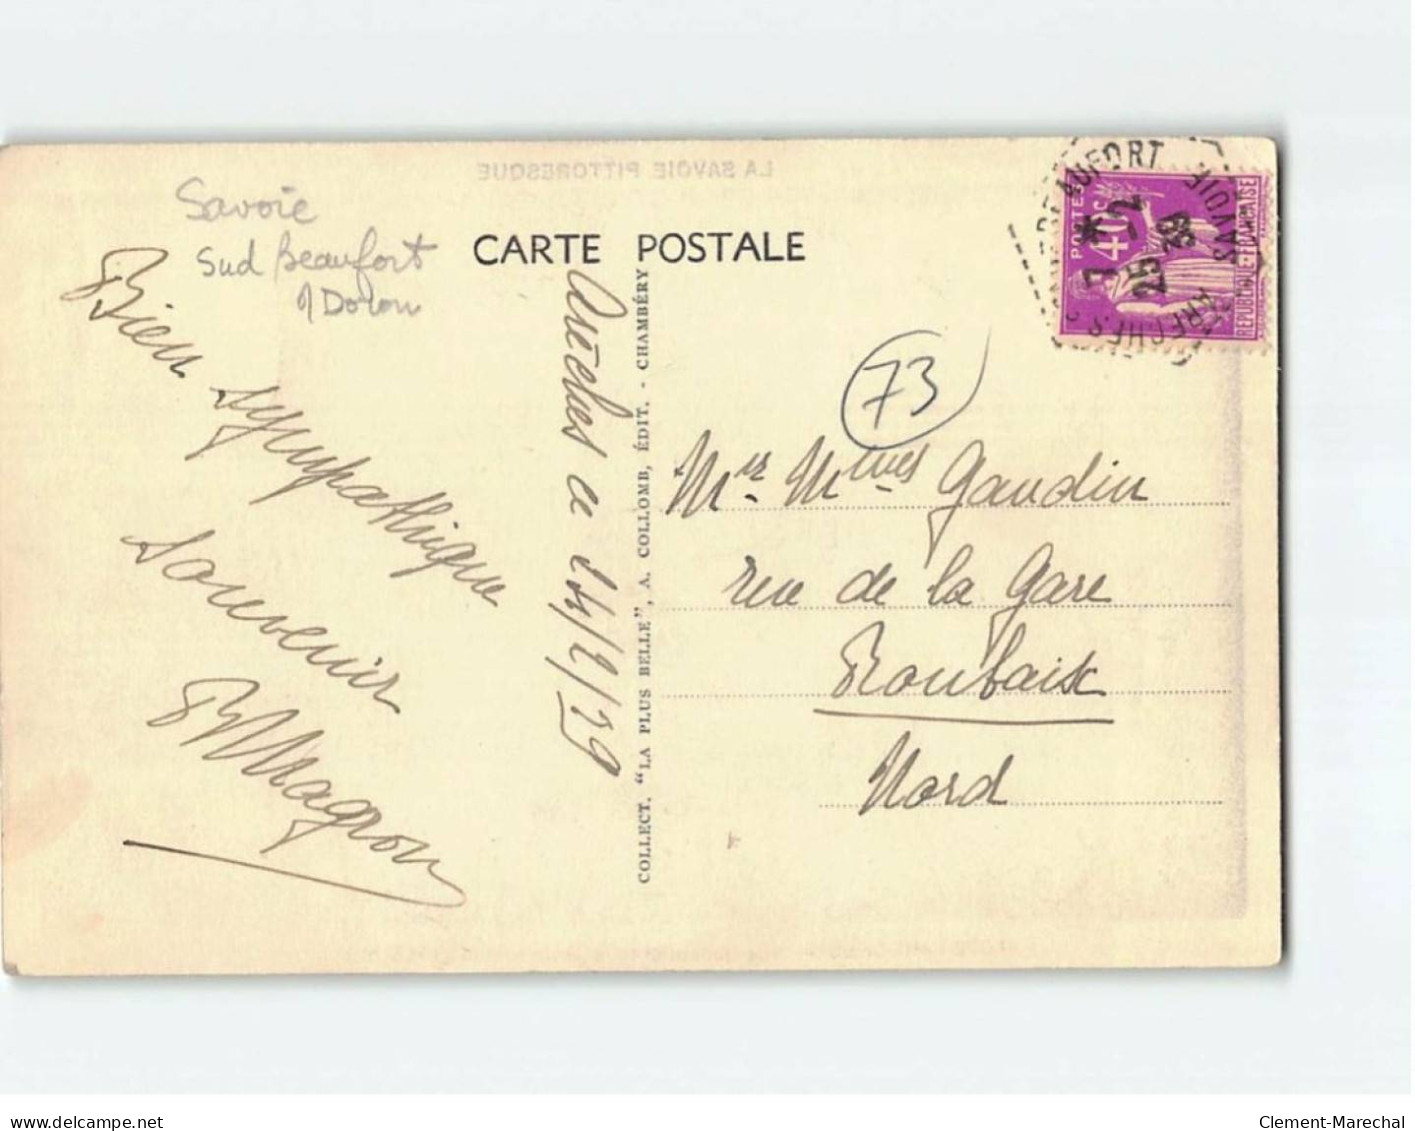 LA SAVOIE PITTORESQUE
Savoie
Sud Beaufort
s/Doron
CARTE POSTALE
Bien
sympathique
souvenir
Magron
Arêches le 24/2/39
COLLECT. "LA PLUS BELLE", A. COLLOMB, ÉDIT. - CHAMBÉRY
BEAUFORT
SAVOIE
ARECHES
7 *
25-2
39
POSTES
40c
REPUBLIQUE-FRANÇAISE
73
Mr Mmes Gaudin
rue de la Gare
Roubaix
Nord
delcampe.net
Clement-Marechal